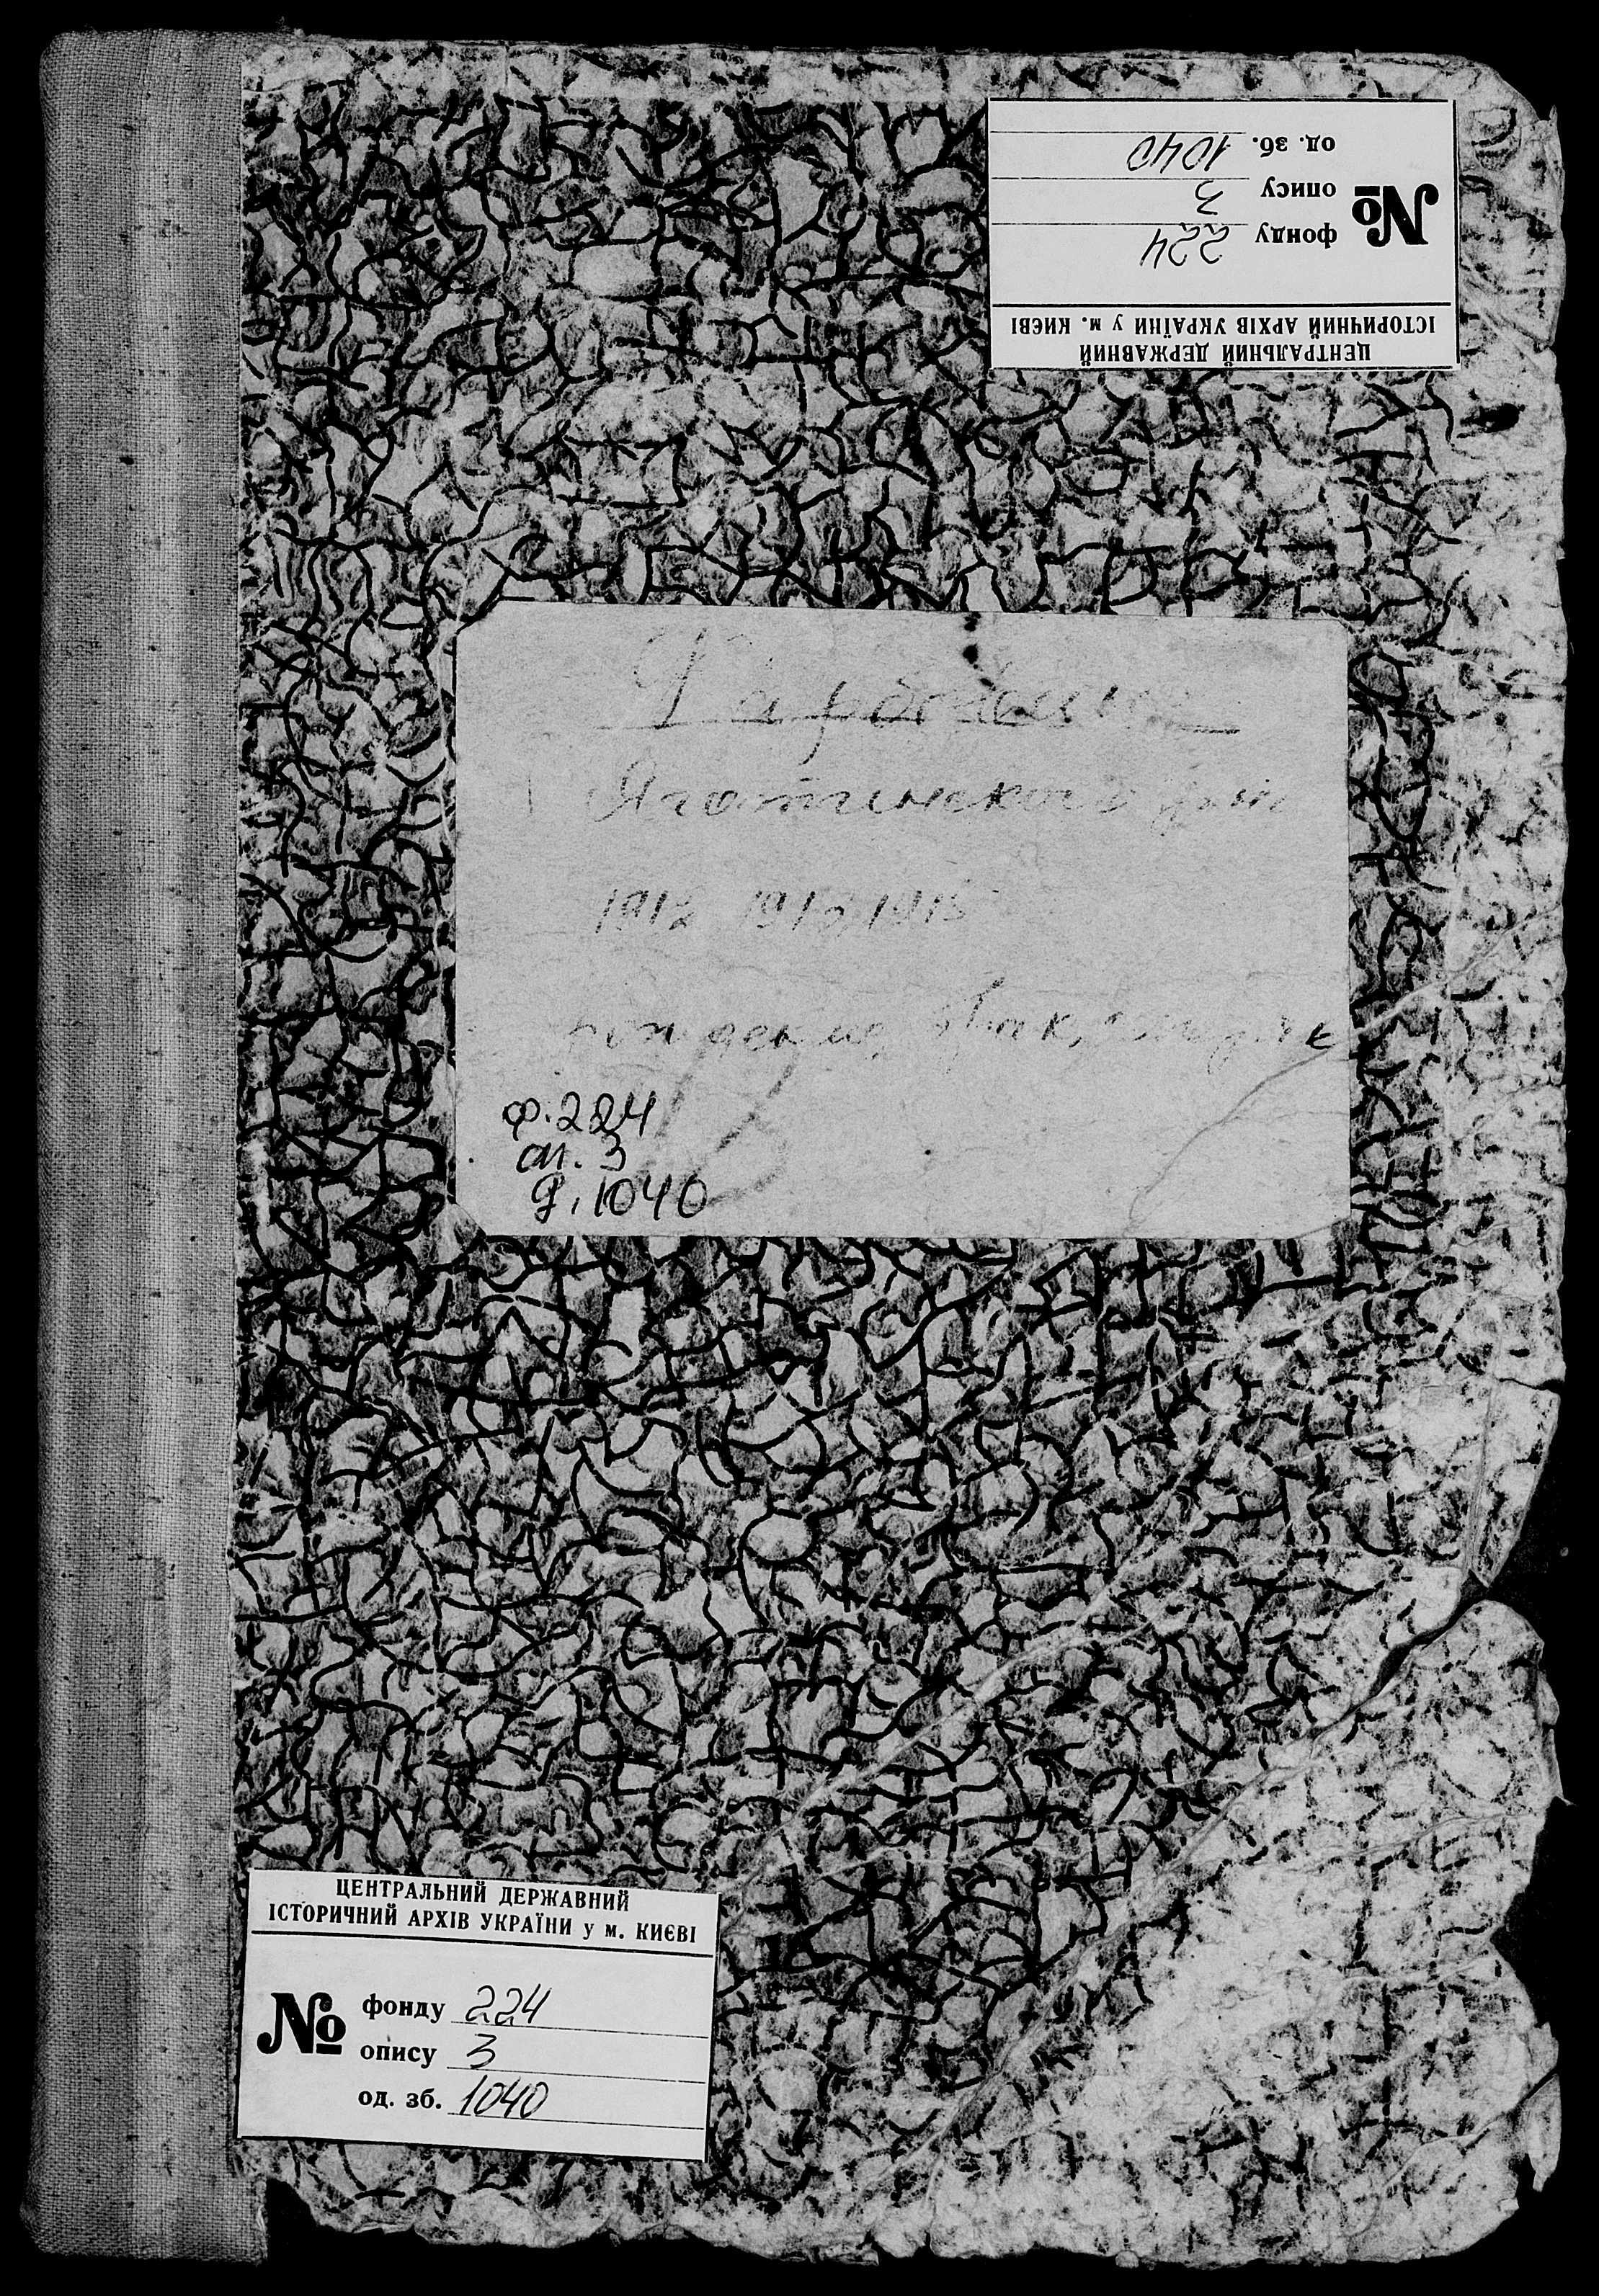 ЦЕНТРАЛЬНИЙ ДЕРЖАВНИЙ
ІСТОРИЧНИЙ АРХІВ УКРАЇНИ у м. КИЄВІ
№
фонду 224
опису 3
од. зб. 1040
Яготинского
1912 1913, 1915
рождение, брак,
ф. 224
оп. 3
д. 1040
ЦЕНТРАЛЬНИЙ ДЕРЖАВНИЙ
ІСТОРИЧНИЙ АРХІВ УКРАЇНИ у м. КИЄВІ
№
фонду 224
опису 3
од. зб. 1040